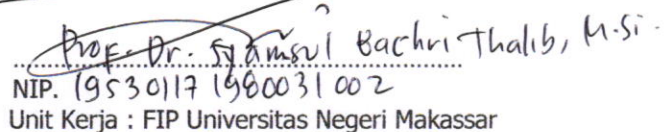 Prof. Dr. Syamsul Bachri Thalib, M.Si.
NIP. 19530117 1980031 002
Unit Kerja : FIP Universitas Negeri Makassar